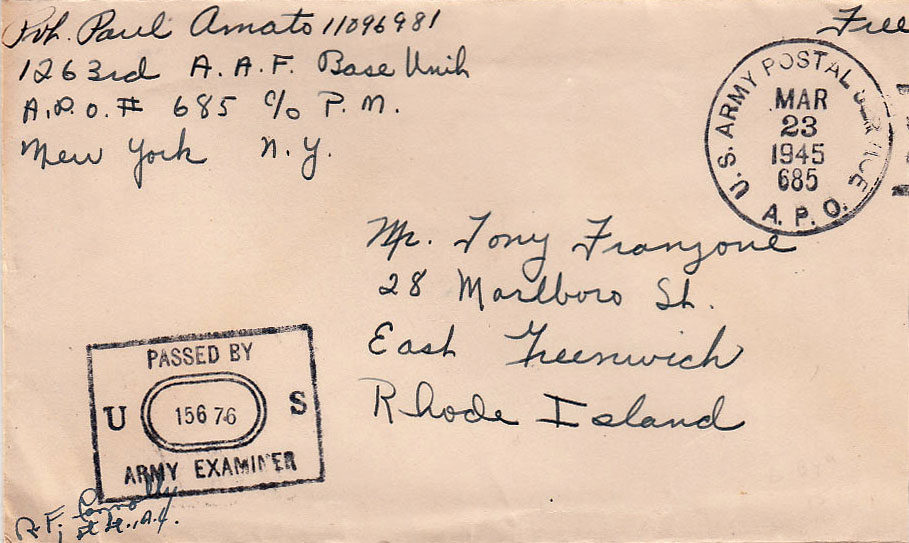 Pvt. Paul Amato 11096981
1263rd A.A.F. Base Unit
A.P.O. # 685 c/o P.M.
New York N.Y.
Free
U.S. ARMY POSTAL SERVICE
MAR
23
1945
685
A.P.O.
Mr. Tony Franzone
28 Marlboro St.
East Greenwich
Rhode Island
PASSED BY
U 15676 S
ARMY EXAMINER
R.F. Connolly